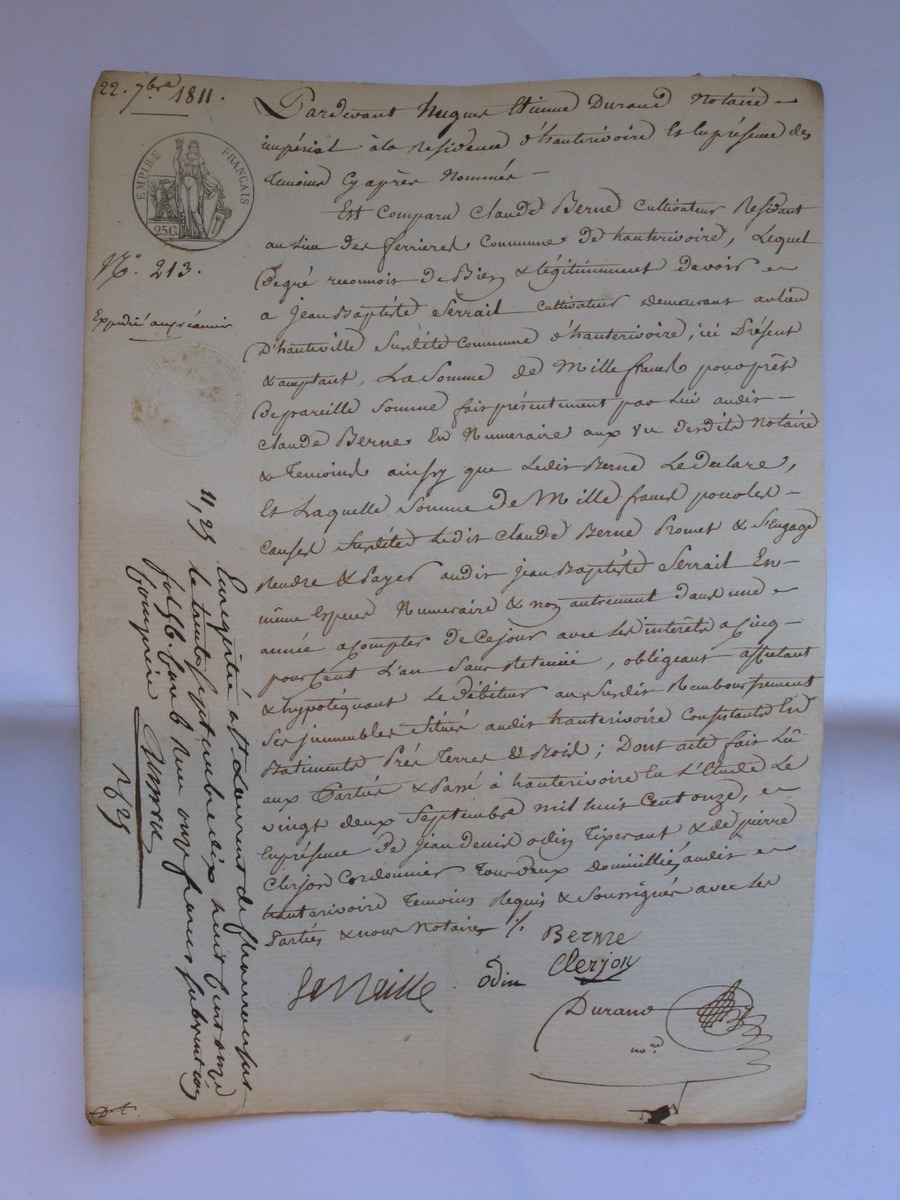 22. 7bre 1811.
EMPIRE FRANÇAIS
25C
No. 213.
Expédié au créancier
Pardevant hugues Etienne Durand Notaire
impérial à la Residence d'hauterivoire Et En présence des
temoins Cy après Nommés
Est Comparu Claude Berne Cultivateur Residant
au Lieu des ferrieres Commune De hauterivoire, Lequel
De gré reconnoit De Bien & légitimement Devoir
a Jean Baptiste Serrail Cultivateur demeurant au lieu
D'hauteville Susdite Commune d'hauterivoire, ici Présent
& acceptant, La Somme de Mille francs pour prêt
De pareille Somme fait présentement par Lui audit
Claude Berne En Numeraire aux vu desdits Notaire
& Temoins ainsy que Ledit Berne Le déclare,
Et Laquelle Somme De Mille francs pour les
Causes Susdites Ledit Claude Berne Promet & S'Engage
Rendre & Payer audit Jean Baptiste Serrail En
même Especes Numeraire & non autrement Dans une
année a Compter De Ce jour avec Les interêts a Cinq
pour Cent L'an Sans Retenüe, obligeant affectant
& hypotéquant Le Débiteur au Susdit Remboursement
Ses immeubles Situés audit hauterivoire Consistants En
Batiments Prés Terres & Bois; Dont acte fait Lû
aux Parties & Passé à hauterivoire En L'Etude Le
vingt deux Septembre mil huit Cent onze,
En présence De Jean Denis odin Tixerant & de pierre
Clerjon Cordonnier Tous deux domiciliés audit
hauterivoire Temoins Requis & Soussignés avec Les
Parties & nous Notaires ./.
BERNE
Serraille odin Clerjon
Durand
nore
Enregistré a St Laurent de Chamousset
le trente Septembre dix huit Cent onze
fol. 56. Case 6 Reçu onze francs
11,25